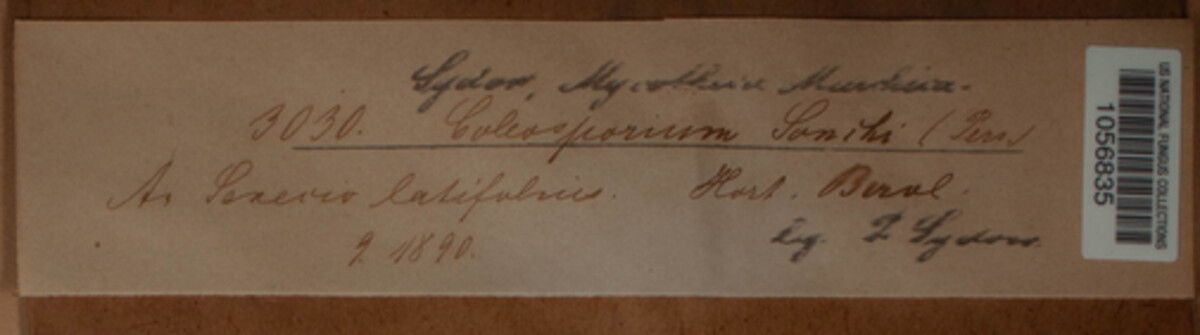 Sydow, Mycotheca Marchica.
3030. Coleosporium Sonchi (Pers.)
An Senecio latifolius. Hort. Berol.
9 1890.
leg. P Sydow.
US NATIONAL FUNGUS COLLECTIONS
1056835